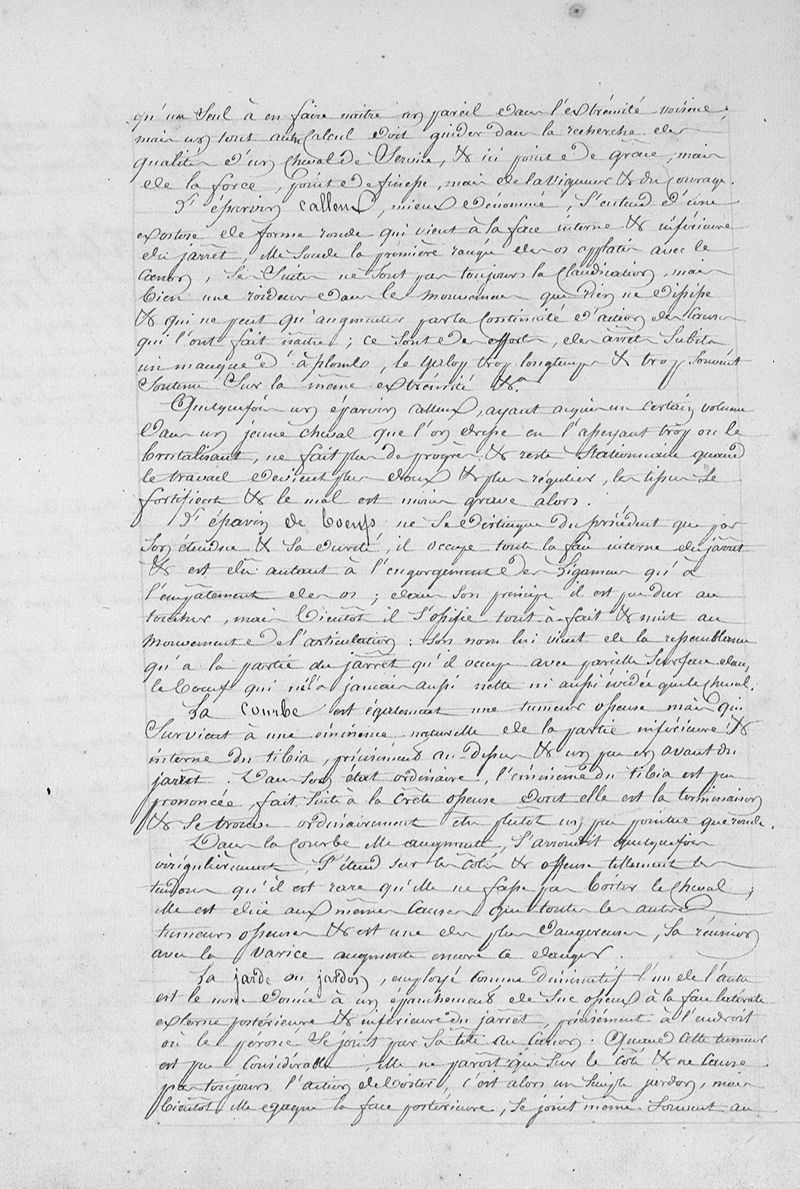 qu'un seul à en faire naitre un pareil dans l'extrémité voisine,
mais un tout autre calcul doit guider dans la recherche des
qualités d'un cheval de Service, & ici point de grâce, mais
de la force, point de finesse, mais de la vigueur & du courage.
L'éparvin calleux, mieux dénommé, s'entend d'une
exostose de forme ronde qui vient à la face interne & inférieure
du jarret, elle soude la première rangée des os applatis avec le
canon, Ses Suites ne sont pas toujours la claudication, mais
bien une roideur dans les mouvemens que rien ne dissipe
& qui ne peut qu'augmenter par la continuité d'action des causes
qui l'ont fait naître ; ce sont des efforts, des arrêts Subits
un manque d'àplomb, le galop trop longtemps & trop souvent
Soutenu Sur la même extrémité &.a
Quelquefois un éparvin calleux, ayant acquis un certain volume
dans un jeune cheval que l'on dresse en l'asseyant trop ou le
bristalisant, ne fait plus de progrès & reste Stationnaire quand
le travail devient plus doux & plus régulier, les tissus se
fortifient & le mal est moins grave alors.
L'éparvin de boeufs ne se distingue du précédent que par
son étendue & sa dureté, il occupe toute la face interne du jarret
& est dû autant à l'engorgement des ligamens qu'à
l'empâtement des os ; dans son principe il est peu dur au
toucher, mais bientôt il s'ossifie tout à fait & nuit au
mouvement de l'articulation : son nom lui vient de la ressemblance
qu'a la partie du jarret qu'il occupe avec pareille surface dans
le boeuf qui ne l'a jamais aussi nette ni aussi évidée que le cheval.
La courbe est également une tumeur osseuse mais qui
survient à une éminence naturelle de la partie inférieure &
interne du tibia, précisément au dessus & un peu en avant du
jarret. Dans son état ordinaire, l'éminence du tibia est peu
prononcée, fait suite à la crête osseuse dont elle est la terminaison
& se trouve ordinairement être plutôt un peu pointue que ronde.
Dans la courbe elle augmente, s'arrondit quelquefois
irrégulièrement, s'étend sur les côtés & offense tellement les
tendons qu'il est rare qu'elle ne fasse pas boiter le cheval ;
elle est due aux mêmes causes que toutes les autres
tumeurs osseuses & est une des plus dangereuses, sa réunion
avec la varice augmente encore le danger.
La jarde ou jardon, employé comme diminutif l'un de l'autre
est le nom donné à un épanchement de suc osseux à la face latérale
externe postérieure & inférieure du jarret, précisément à l'endroit
où le péroné se joint par sa tête au canon. Quand cette tumeur
est peu considérable, elle ne paroit que sur le côté & ne cause
pas toujours l'action de boiter, c'est alors un simple jardon, mais
bientôt elle gagne la face postérieure, se joint même souvent au